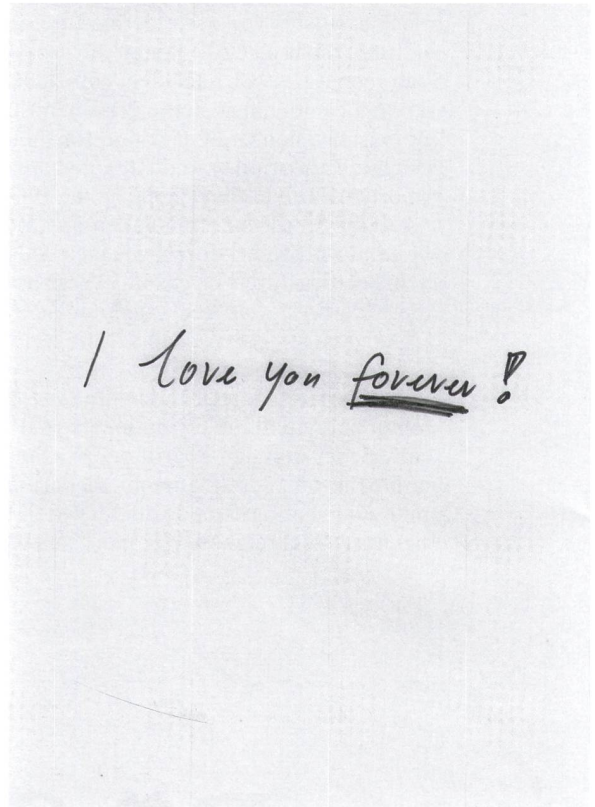 I love you forever!